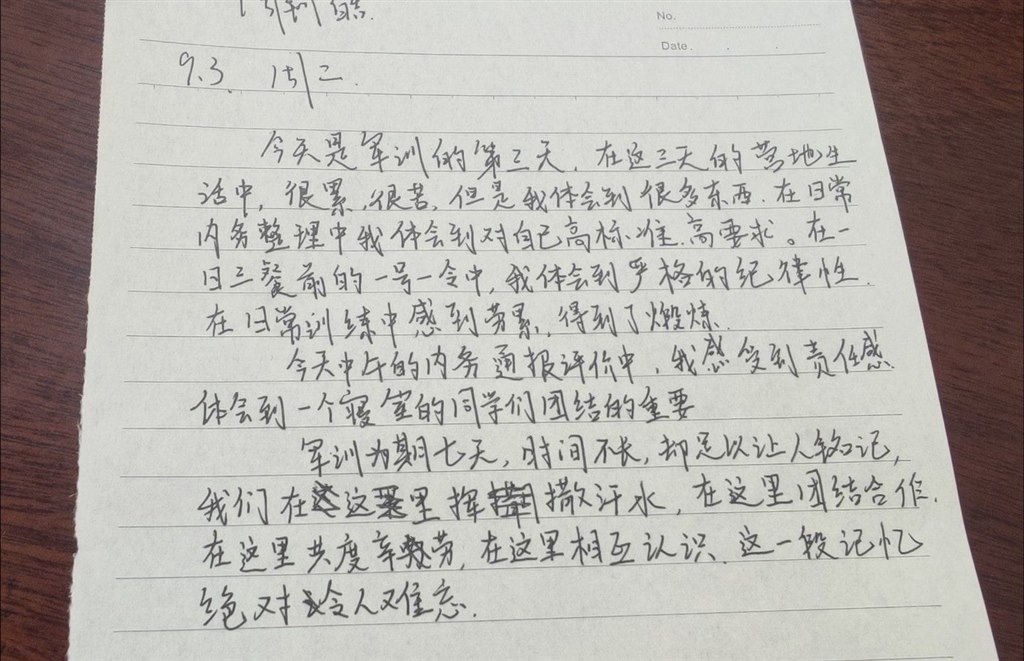 No.
Date.
9.3. 周二.
今天是军训的第三天，在这三天的营地生
活中，很累，很苦，但是我体会到很多东西.在日常
内务整理中我体会到对自己高标准.高要求。在一
日三餐前的一号一令中，我体会到严格的纪律性.
在日常训练中感到劳累，得到了煅炼.
今天中午的内务通报评价中，我感受到责任感
体会到一个寝室的同学们团结的重要
军训为期七天，时间不长，却足以让人铭记，
我们在这里挥撒汗水，在这里团结合作.
在这里共度辛劳，在这里相互认识、这一段记忆
绝对令人难忘.